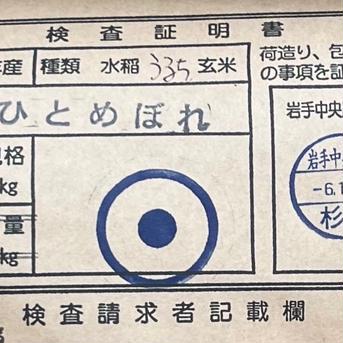 検査証明書
産 種類 水稲 うるち 玄米
荷造り、包
の事項を証
ひとめぼれ
岩手中央
格
kg
岩手中央
-6.1
杉
量
kg
検査請求者記載欄